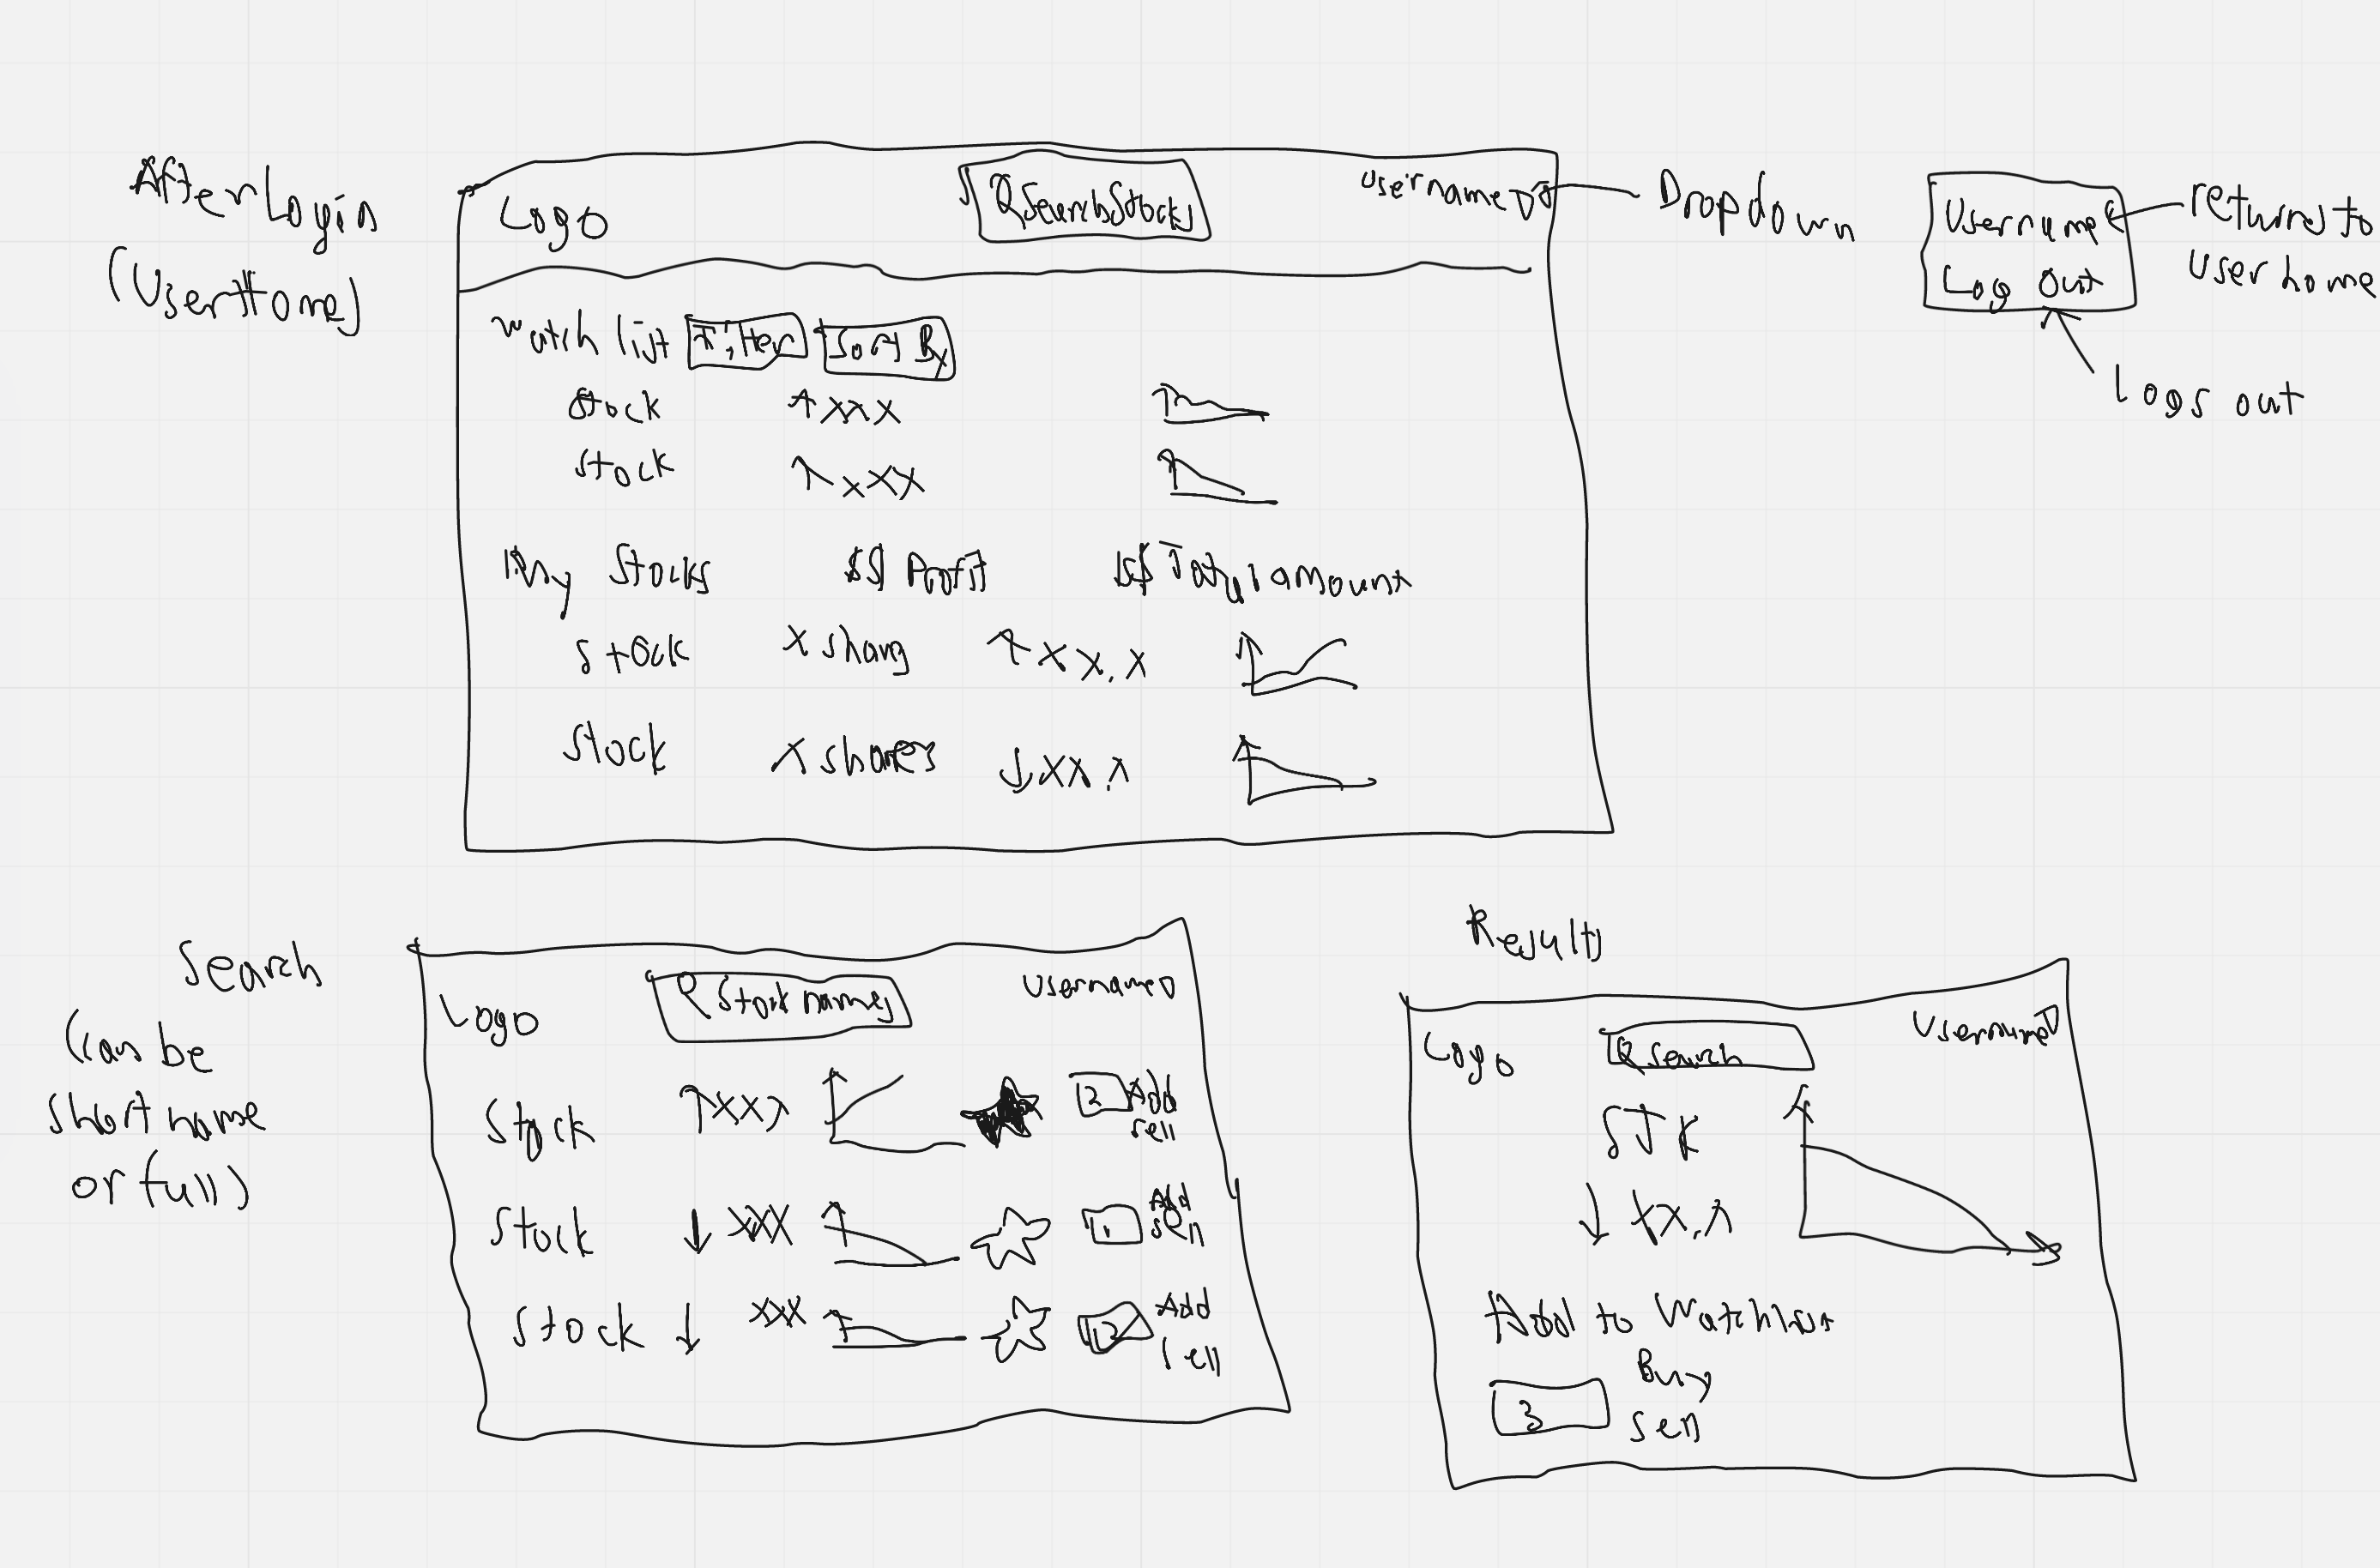 After Login
(UserHome)
Logo
Search Stocks
Username
Dropdown
Username
Log Out
returns to
User home
Logs out
Watch list Filter Sort By
Stock ↑XXX
Stock ↑XXX
My Stocks $$ Profit $$ Total amount
Stock X shares ↑XX.X
Stock X shares ↓XX.X
Search
(can be
short name
or full)
Logo
Stock name
Username
Stock ↑XXX 2 Add
sell
Stock ↓ XXX 1 Add
sell
Stock ↓ XXX Add
sell
Results
Logo
Search
Username
STK
↓ XX.X
Add to Watchlist
3 Buy
Sell